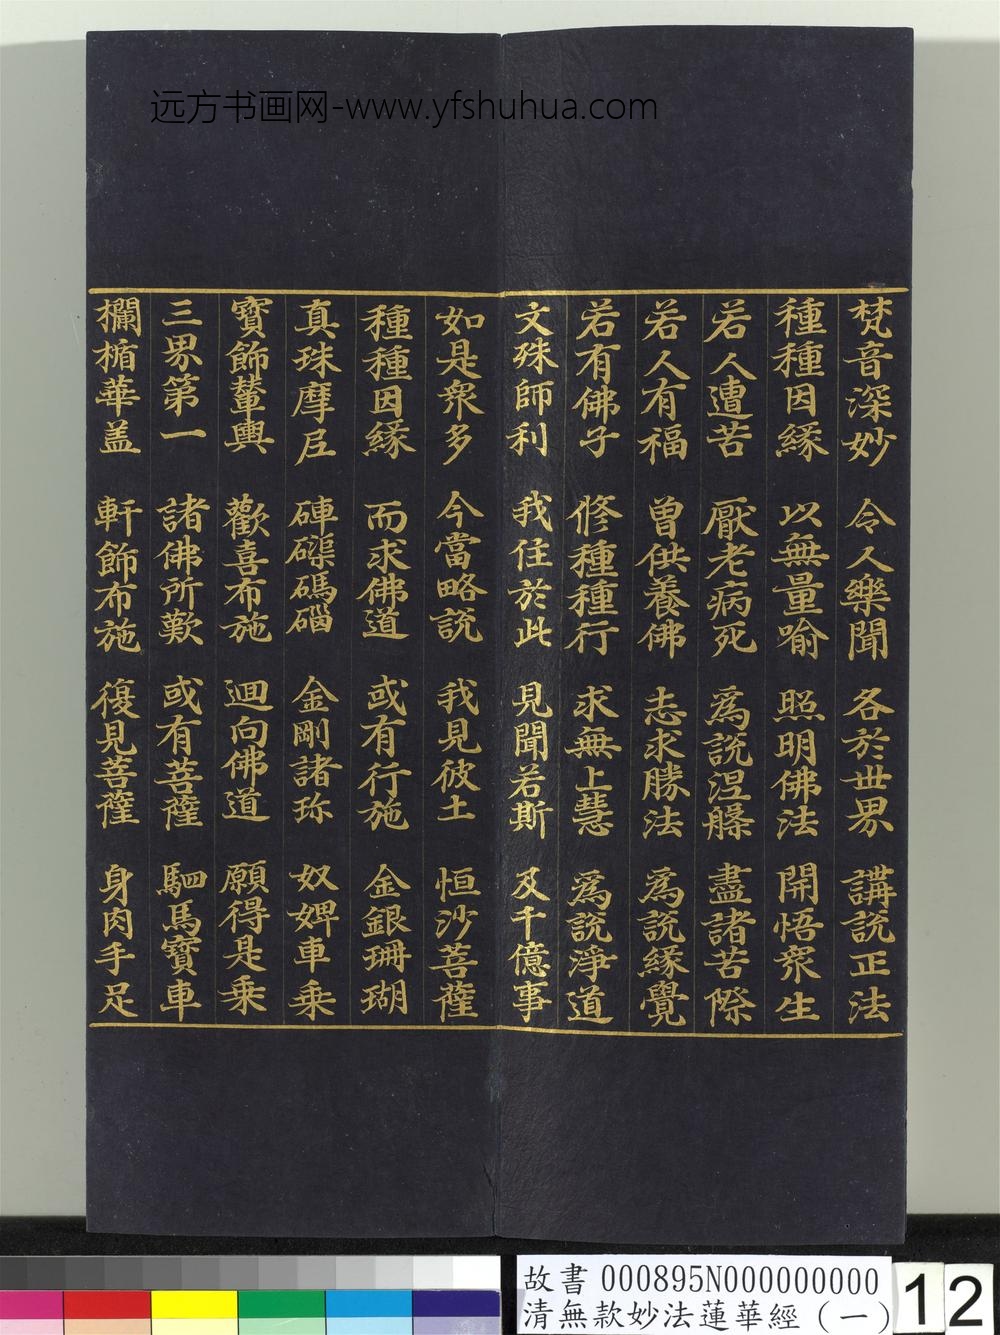 远方书画网-www.yfshuhua.com
梵音深妙 令人樂聞 各於世界 講說正法
種種因緣 以無量喻 照明佛法 開悟衆生
若人遭苦 厭老病死 爲説涅槃 盡諸苦際
若人有福 曾供養佛 志求勝法 爲説緣覺
若有佛子 修種種行 求無上慧 爲説淨道
文殊師利 我住於此 見聞若斯 及千億事
如是衆多 今當略説 我見彼土 恒沙菩薩
種種因緣 而求佛道 或有行施 金銀珊瑚
真珠摩尼 硨磲碼碯 金剛諸珎 奴婢車乘
寶飾輦輿 歡喜布施 迴向佛道 願得是乘
三界第一 諸佛所歎 或有菩薩 駟馬寶車
欄楯華盖 軒飾布施 復見菩薩 身肉手足
故書 000895N000000000
清無款妙法蓮華經(一)
12